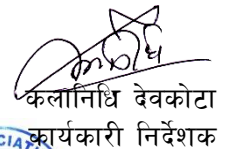 कलानिधि देवकोटा
कार्यकारी निर्देशक
CIAT